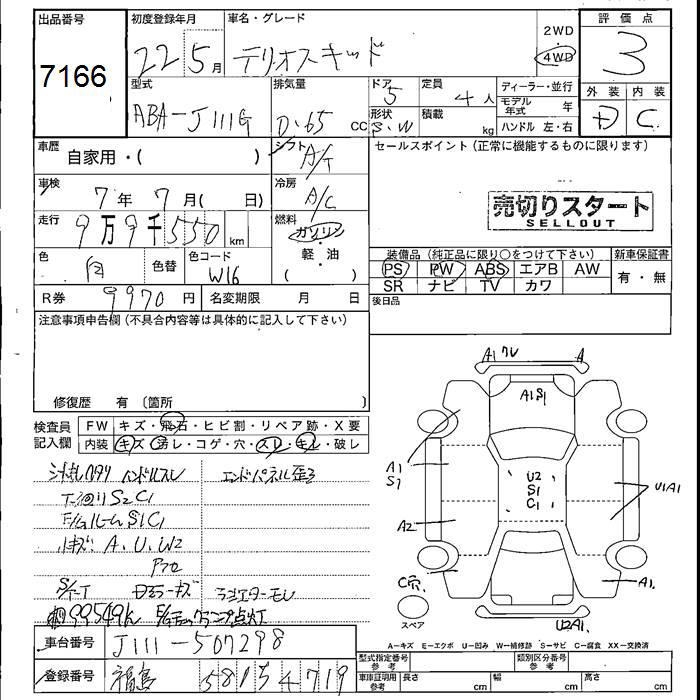 出品番号
7166
初度登録年月
22 5月
車名・グレード
テリオスキッド
2WD
4WD
評価点
3
型式
ABA-J111G
排気量
0.65 CC
ドア
5
形状
S.W
定員
4人
積載
kg
ディーラー・並行
モデル年式 年
ハンドル 左・右
外装 内装
D C
車歴
自家用・( )
シフト
A/T
セールスポイント(正常に機能するものに限ります)
車検
7年 7月( 日)
冷房
A/C
走行
9万9千550 km
燃料
ガソリン
軽・油
( )
売切りスタート
SELLOUT
色
白
色替
色コード
W16
装備品(純正品に限り○をつけて下さい)
新車保証書
PS PW ABS エアB AW
SR ナビ TV カワ
有・無
R券 9970円
名変期限 月 日
後日品
注意事項申告欄(不具合内容等は具体的に記入して下さい)
修復歴 有 〔箇所 〕
検査員記入欄
FW キズ・飛石・ヒビ割・リペア跡・X要
内装 キズ・汚レ・コゲ・穴・スレ・キレ・破レ
ハンドルスレ
エンドパネル歪ミ
S2C1
S1C1
小キズ A、U、W2
Dミラーキズ
ラジエターモレ
99549k
ランプ点灯
A1
A
A1S1
A1
S1
U2
S1
C1
U1A1
A2
C穴
A1
スペア
U2A1
A=キズ E=エクボ U=凹み W=補修跡 S=サビ C=腐食 XX=交換済
車台番号
J111-507298
登録番号
福島 581 54 719
型式指定番号 参考
類別区分番号 参考
車庫証明用 参考
長さ cm
幅 cm
高さ cm